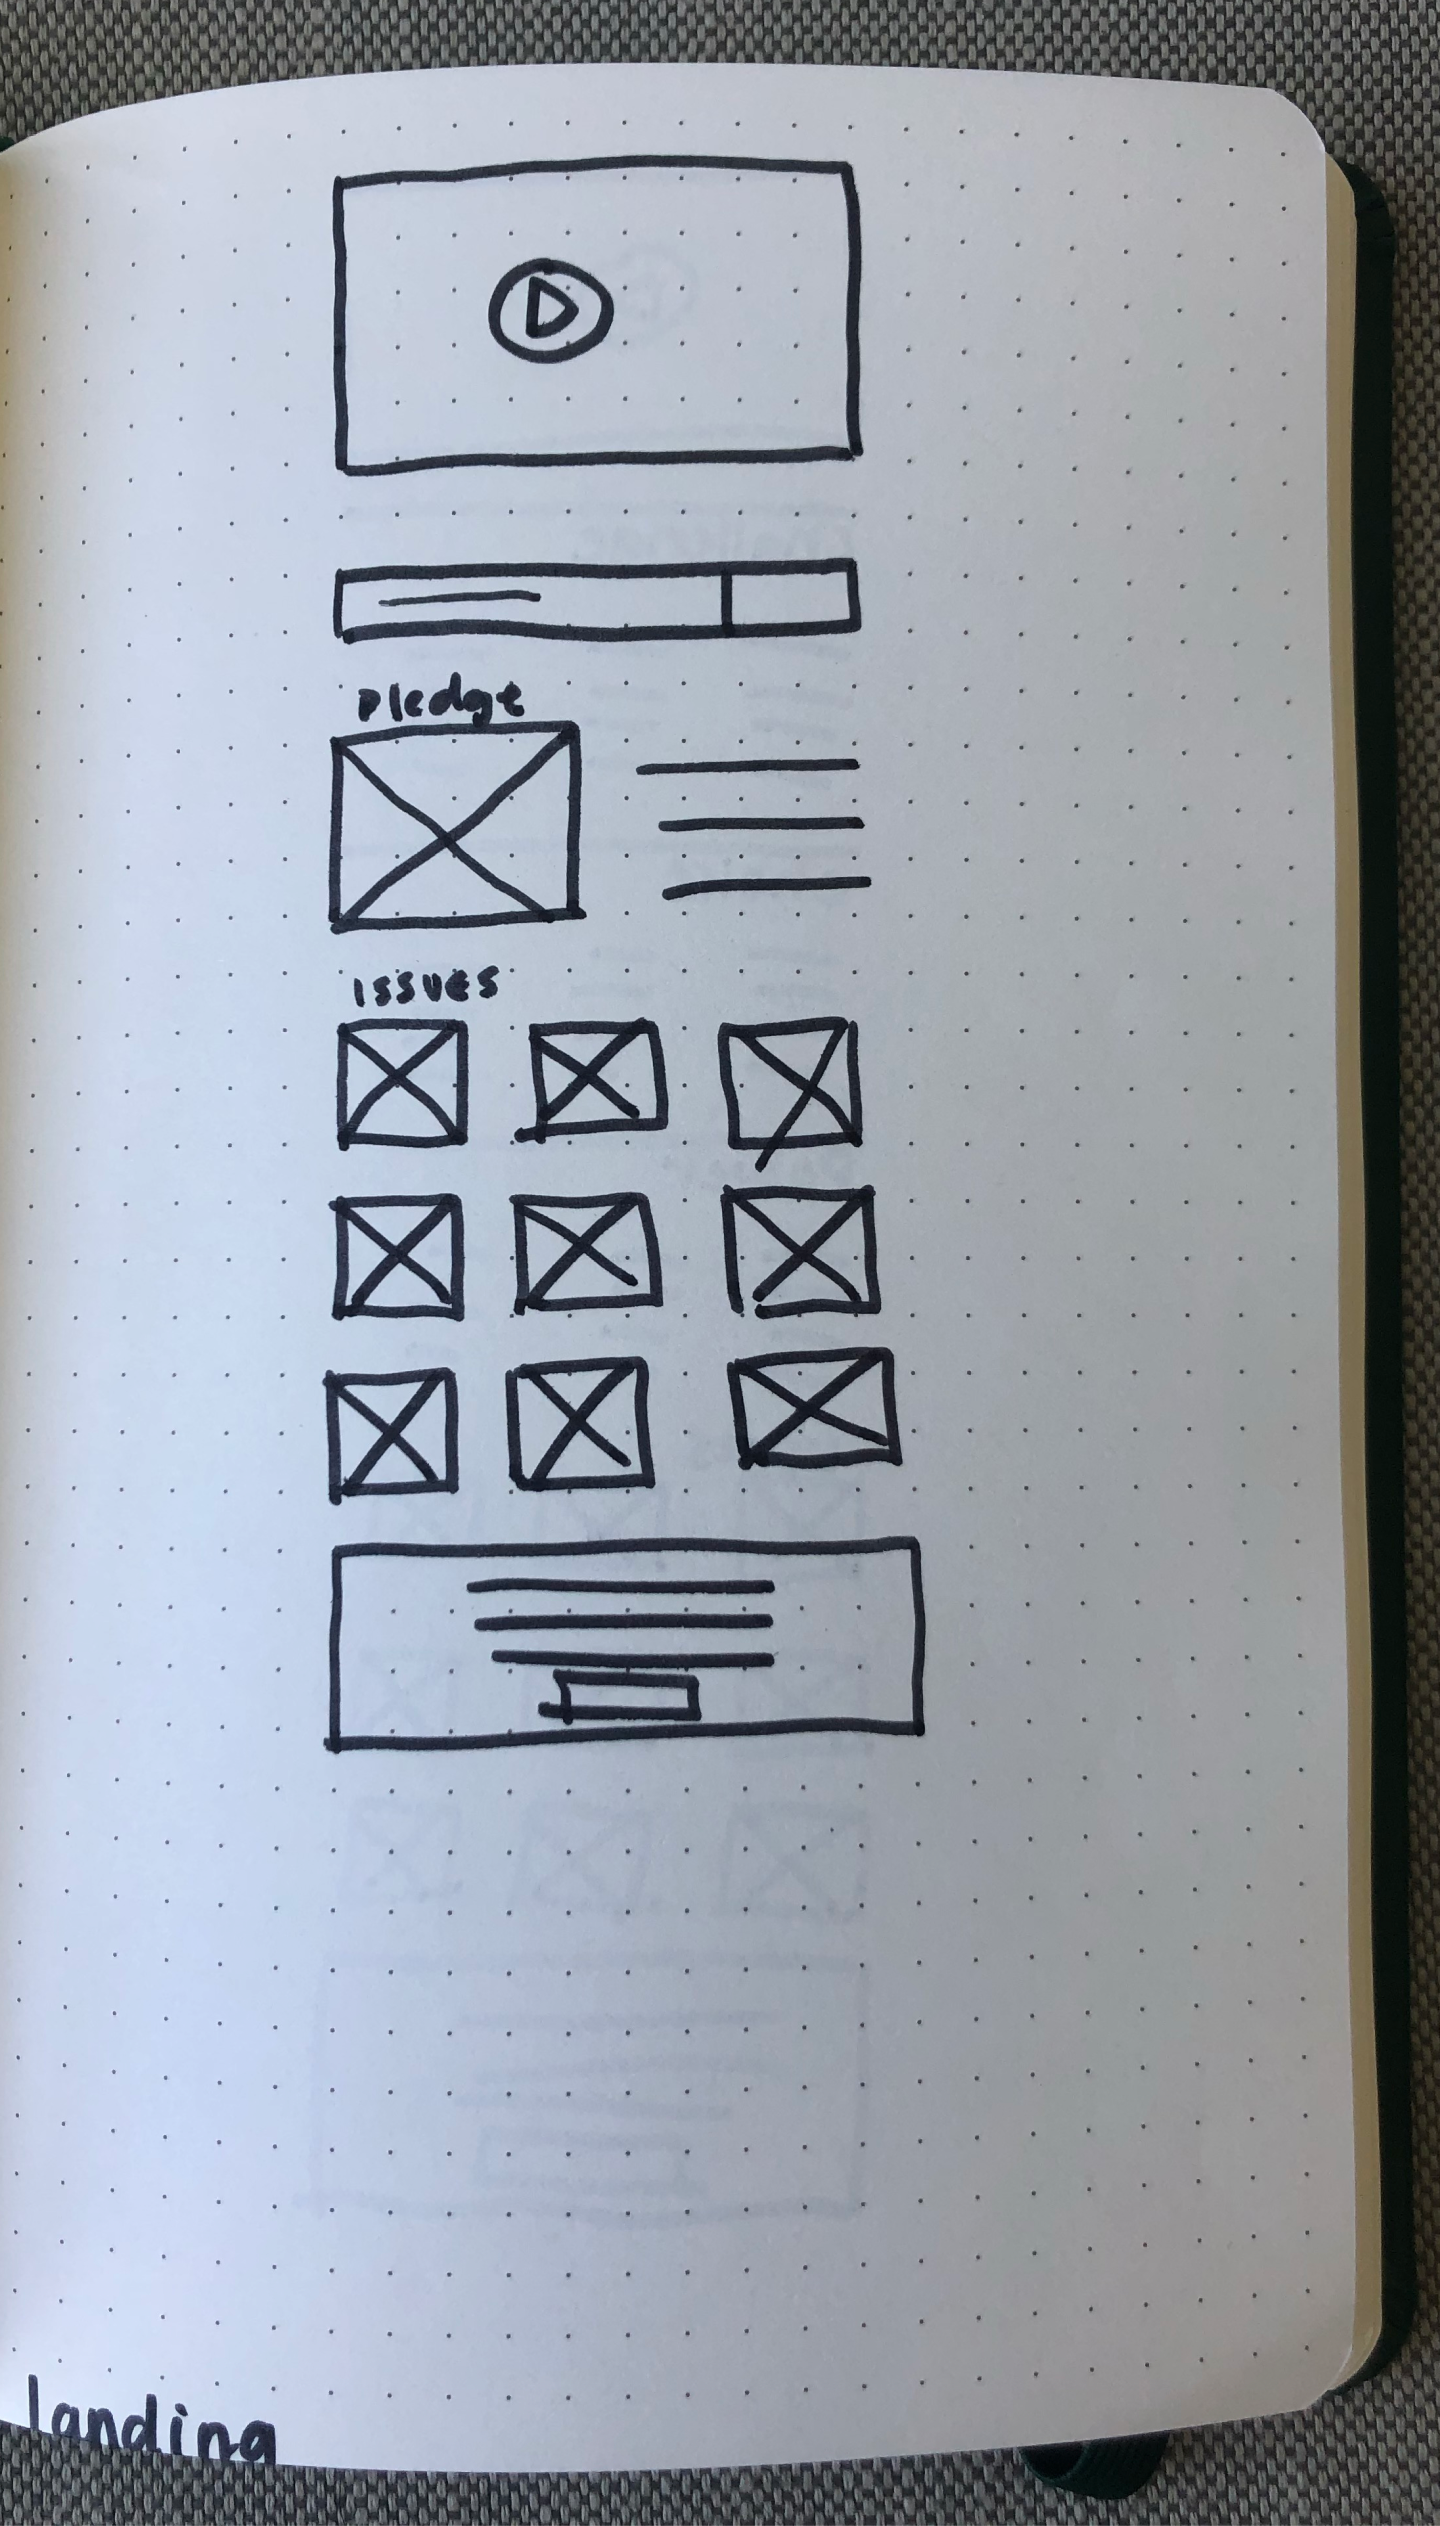 pledge
issues
landing